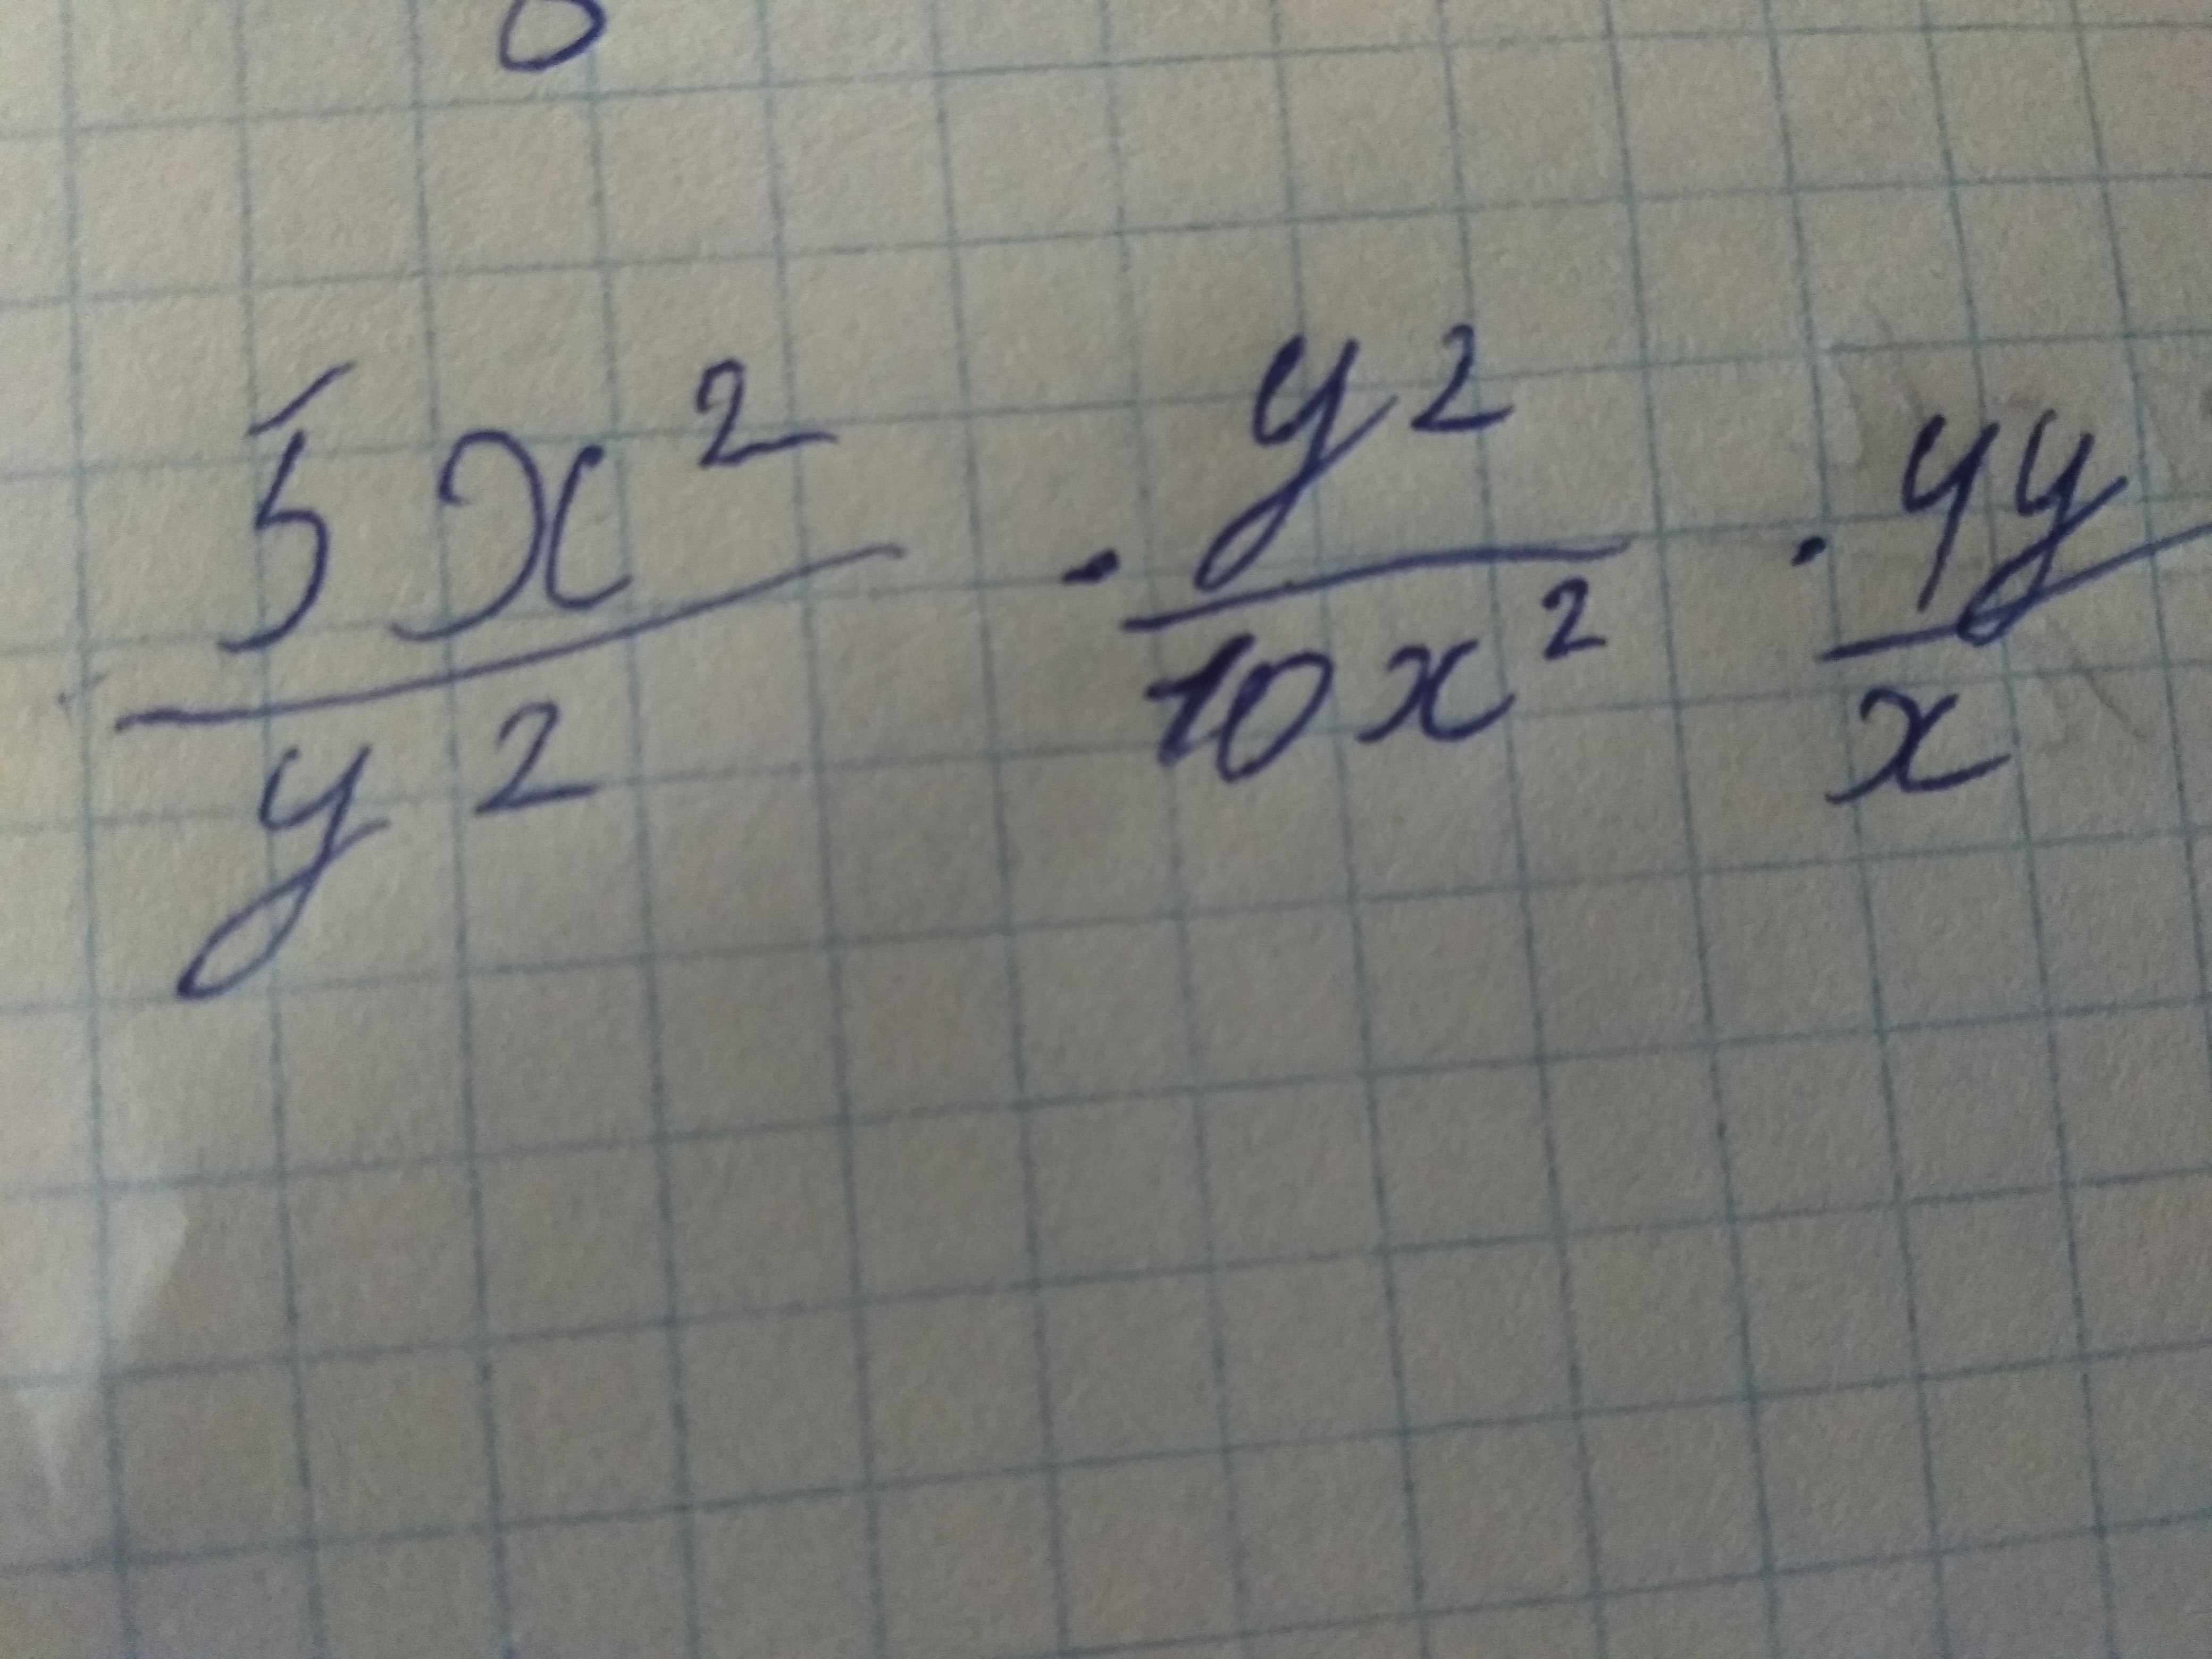 5x² / y² · y² / 10x² · 4y / x